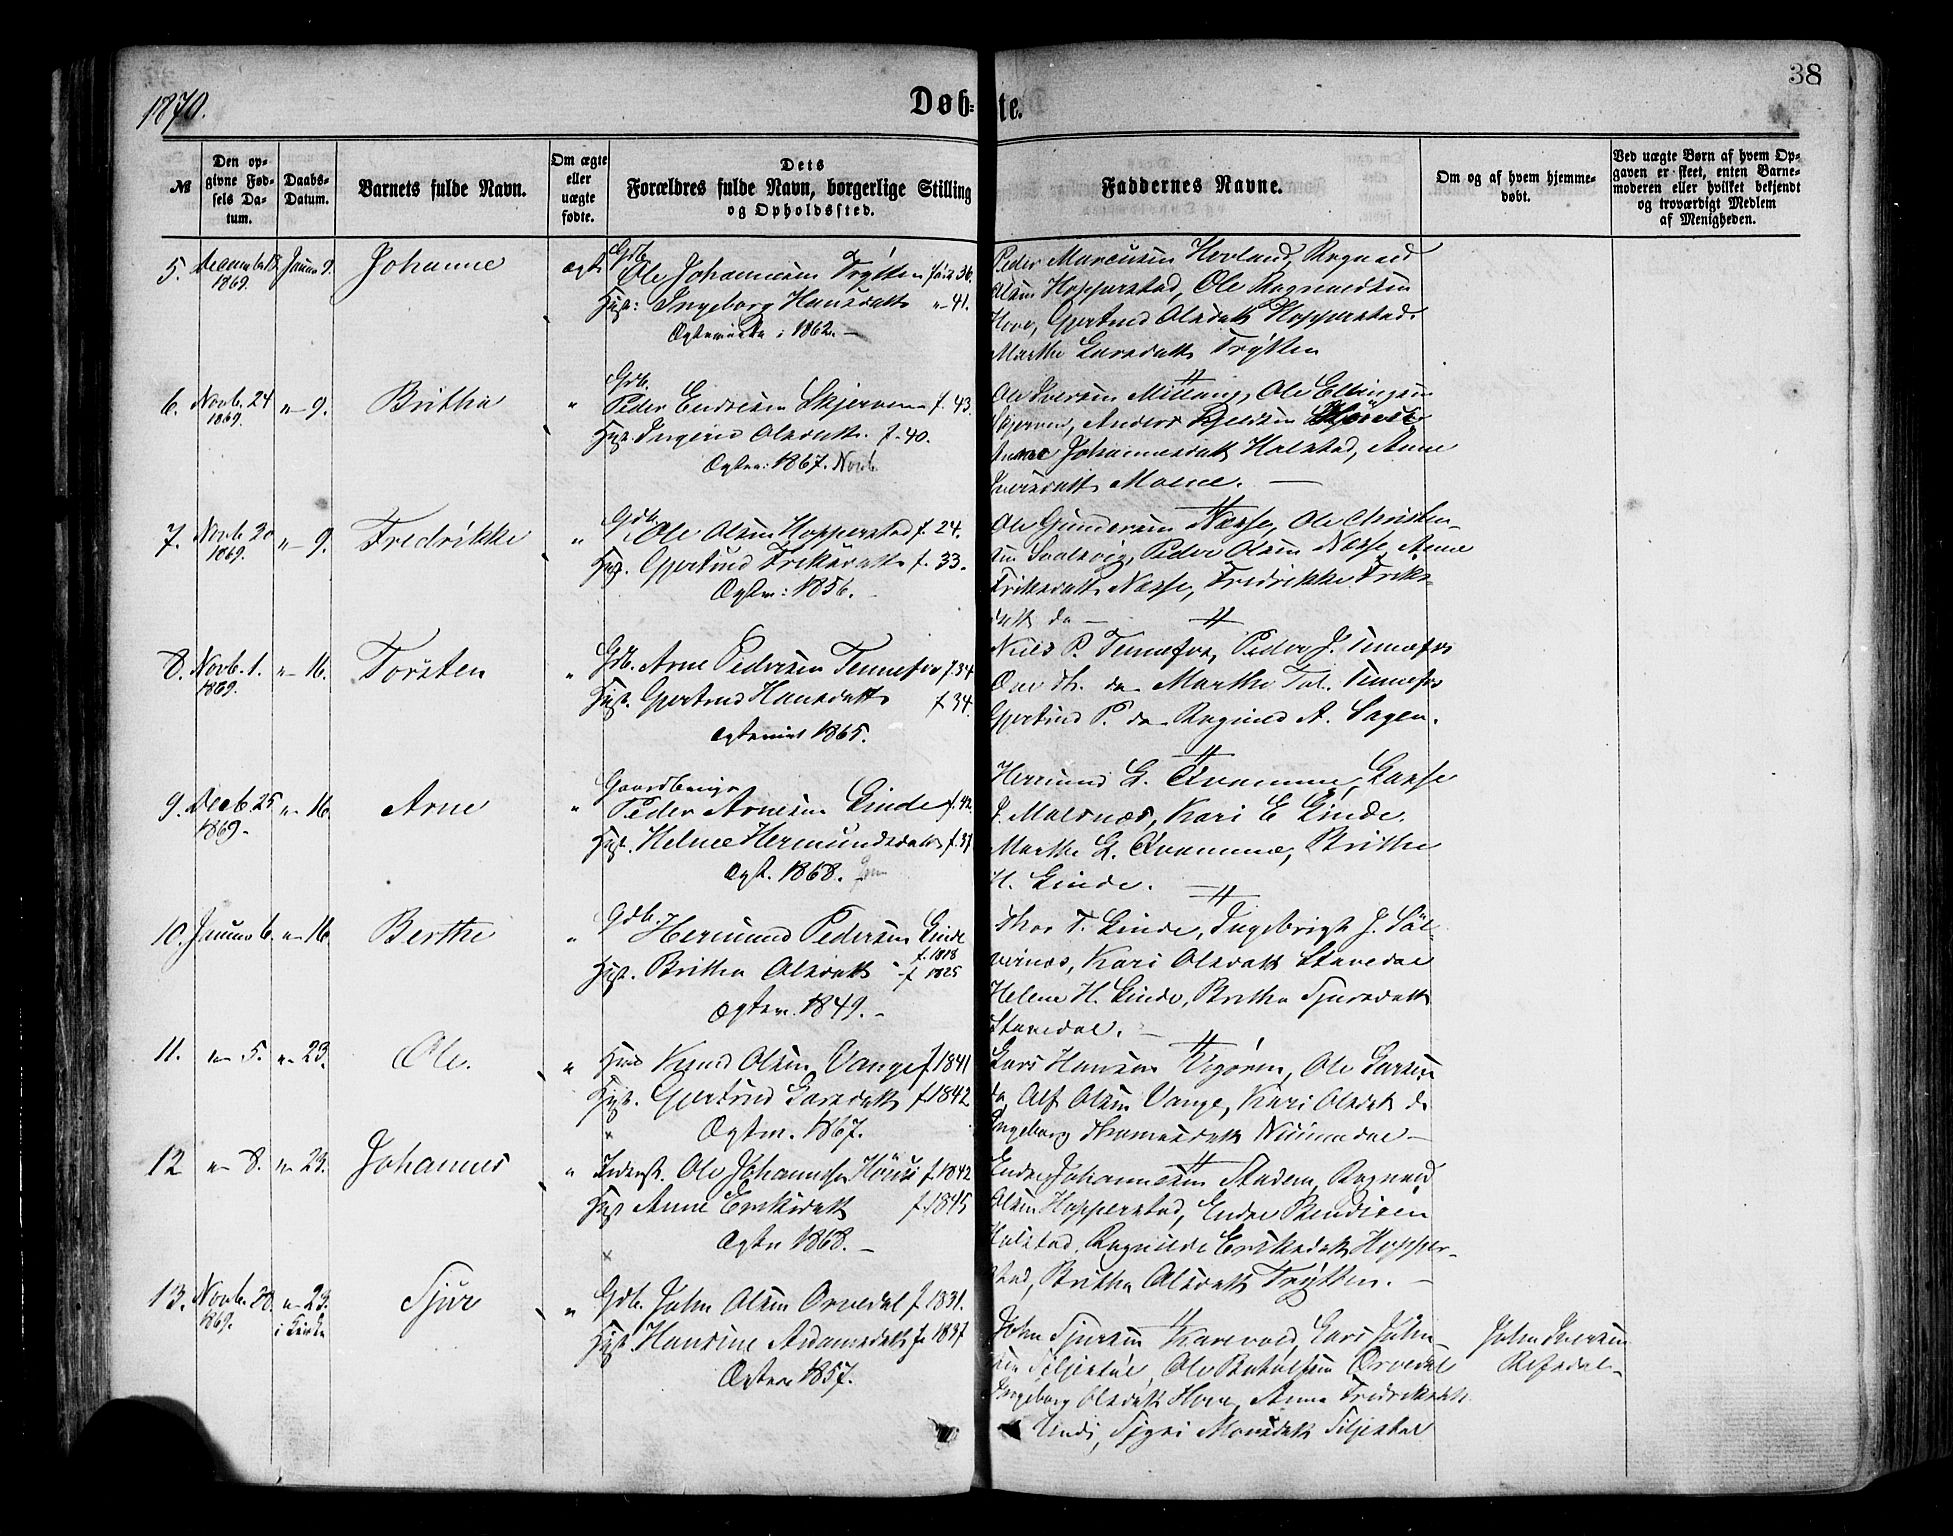 1870.
Døb-
te.
38
№
Den op-
givne Fød-
sels Da-
tum.
Daabs-
Datum.
Barnets fulde Navn.
Om ægte
eller
uægte
fødte.
Dets
Forældres fulde Navn, borgerlige Stilling
og Opholdssted.
Faddernes Navne.
Om og af hvem hjemme-
døbt.
Ved uægte Børn af hvem Op-
gaven er skeet, enten Barne-
moderen eller hvilket bekjendt
og troværdigt Medlem
af Menigheden.
5.
1869.
9.
Johanne
Gdb.
Ole Johannesen Trytten
Hust: Ingeborg Hansdatt "- 41.
i 1862.-
Peder Marcusen Hovland, Ragnald
Olsen Hopperstad, Ole Ragnaldsen
Hove, Gjertrud Olsdatt Hopperstad.
Marthe Larsdatt Trytten
6.
Novb. 24
1869.
"- 9.
Britha
"
Gdb.
Peder Endresen Skjerven f. 43.
Hust. Ingerid Olsdatt. f. 40.
Ægtev: 1867. Novb.
Ole Iversen Ole Ellingsen
Skjerven, Anders
Johannesdatt Halstad, Anne
Iversdatt Moene. —
7.
Novb. 20
1869.
"- 9.
Fredrikke
"
Gdb.
Ole Olsen Hopperstad f. 24.
Hust. Gjertrud Eriksdatt f. 33.
Ægtev: 1856.
Ole Gundersen Næsse, Ole Christen-
sen Peder Olsen Næsse, Anne
Eriksdatt Næsse, Fredrikke Eriks-
datt do —
8.
Novb. 1.
1869.
"- 16.
Torsten
"
Gdb. Arne Pedersen Tennefos f. 34
Hust. Gjertrud Hansdatt f. 34.
1865.
Niels P. Tennefos, Peder J. Tennefos
do Marthe Tennefos
Gjertrud P. do Ragnild A. Hagen.
9.
Decb. 25
1869-
"- 16.
Arne
"
Gaardbruger
Peder Arnesen Linde f. 42.
Hust. Helene Hermundsdatt f. 37
Ægt. 1868.
Hermund L. Kvamme, Lasse
J. Malsnæs, Kari E Linde.
Marthe L. Kvamme, Brithe
H. Linde. —
10.
Januar 6.
"- 16.
Berthe
"
Gdb.
Hermund Pedersen Linde
f. 1818
Hust. Britha Olsdatt - f. 1825
Ægtev. 1849. -
Thor T. Linde, Ingebrigt J. Sæl-
vernæs, Kari Olsdatt Stavedal
Helene H. Linde, Britha Sjursdatt
Stavedal. —
11.
"- 5.
"- 23.
Ole.
"
Knud Olsen Vange f. 1841
Hust. Gjertrud Larsdatt f. 1842
Ægtev. 1867.
Lars Hansen Vigøren, Ole Larsen
do Alf Olsen Vange, Kari Olsdatt do
Ingeborg Thomasdatt Nummedal —
12
"- 8.
"- 23.
Johannes
"
Inderst. Ole Johannesen f. 1842
Hust Anne Eriksdatt f. 1845
Ægtev 1868. —
Endre Johannesen Stadem, Ragnald
Olsen Hopperstad, Endre Bendixen
Halstad, Ragnilde Eriksdatt Hopper-
stad, Britha Olsdatt Trytten. —
13.
Novb. 28.
1869.
"- 23.
i Kirke
Sjur
"
Gdb. John Olsen Orvedal f. 1831.
Hust. Hansine Adamsdatt f. 1837
Ægtev 1857.
John Sjursen Lars John-
sen Ole Orvedal
Ingeborg Olsdatt Hove, Anna Fredriksdatt
Undi, Sigri Monsdatt
John Iversen
Refsdal-